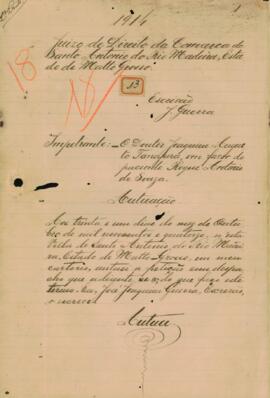 1914
1
Juizo de Direito da Comarca de
Santo Antonio do Rio Madeira, Esta-
do de Matto Grosso
18
13
Escrivão
J. Guerra
Impetrante: O Doutor Joaquim Augus-
to Tanajura, em favor do
paciente Roque Antonio
de Souza.
Autuação
Aos trinta e um dias do mez de Outu-
bro de mil novecentos e quatorze, n'esta
Villa de Santo Antonio do Rio Madei-
ra, Estado de Matto Grosso, em meu
cartorio, autuo a petição com despa-
cho que adiante se vê, do que faço este
termo. Eu, José Joaquim Guerra, Escrivão,
o escrevi
Autuei